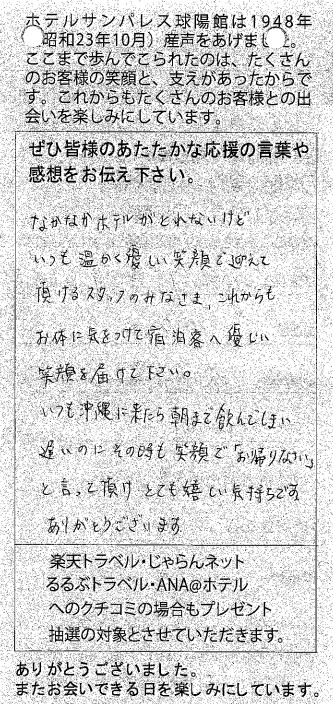 ホテルサンパレス球陽館は1948年
昭和23年10月）産声をあげました。
ここまで歩んでこられたのは、たくさん
のお客様の笑顔と、支えがあったからで
す。これからもたくさんのお客様との出
会いを楽しみにしています。
ぜひ皆様のあたたかな応援の言葉や
感想をお伝え下さい。
なかなかホテルがとれないけど
いつも温かく優しい笑顔で迎えて
頂けるスタッフのみなさま、これからも
お体に気をつけて宿泊客へ優しい
笑顔を届けて下さい。
いつも沖縄に来たら朝まで飲んでしまい
遅いのにその時も笑顔で「お帰りなさい」
と言って頂けとても嬉しい気持ちです
ありがとうございます
楽天トラベル・じゃらんネット
るるぶトラベル・ANA@ホテル
へのクチコミの場合もプレゼント
抽選の対象とさせていただきます。
ありがとうございました。
またお会いできる日を楽しみにしています。